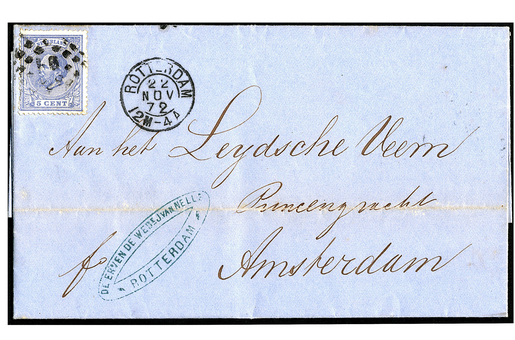 5 CENT
ROTTERDAM
22
NOV
72
12M-4A
Aan het Leydsche Veem
Prinsengracht
DE ERVEN DE WED E J VAN NELLE
ROTTERDAM
Amsterdam